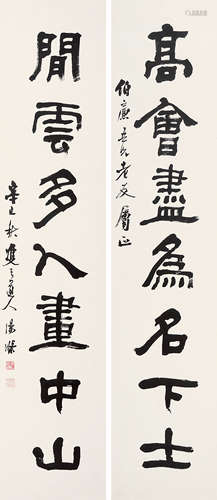 高會盡為名下士
伯廉吾兄老友屬正
閒雲多入畫中山
辛巳
道人